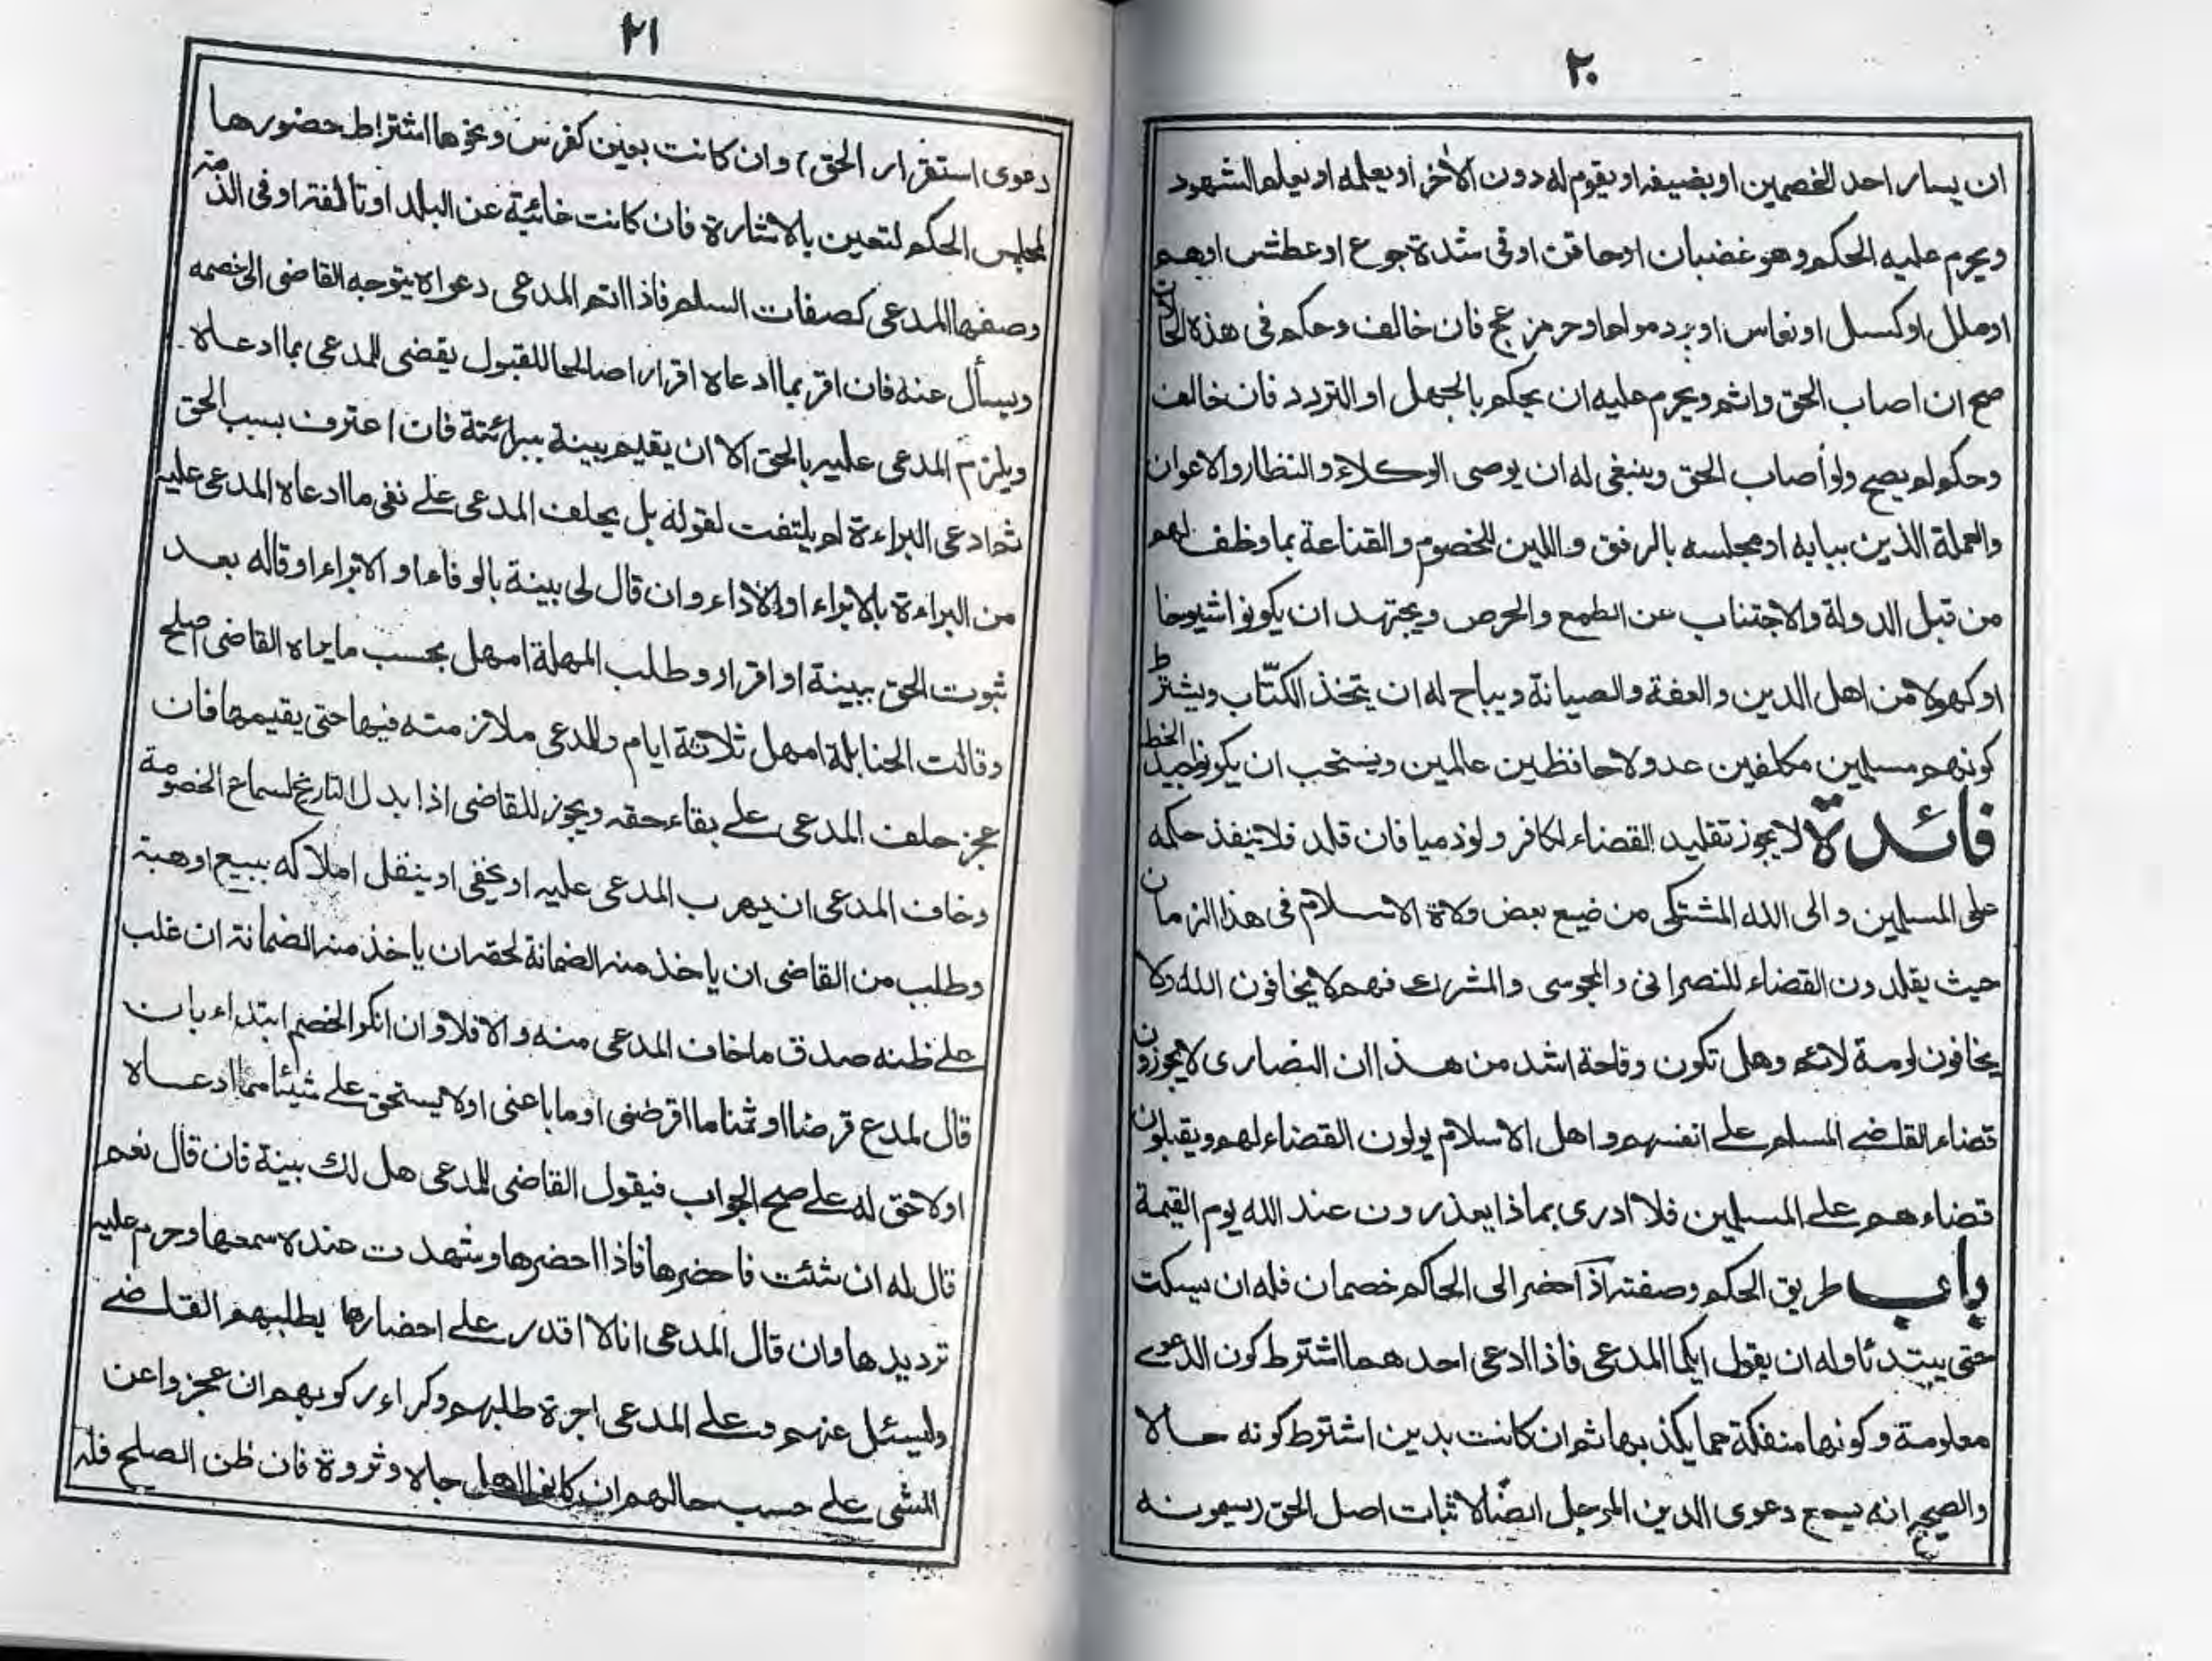 ٢٠
ان يسار احد الخصمين او يضيفه او يقوم له دون الأخر او يعلمه او يعلم الشهود
ويحرم عليه الحكم وهو غضبان او حاقن او في شدة جوع او عطش او هم
او ملل او كسل او نعاس او برد مولم او حر مزعج فان خالف وحكم في هذه الحال
صح ان اصاب الحق واثم ويحرم عليه ان يحكم بالجهل او التردد فان خالف
وحكم لم يصح ولو أصاب الحق وينبغي له ان يوصى الوكلاء والنظار والاعوان
والعملة الذين ببابه او مجلسه بالرفق واللين للخصوم والقناعة بما وظف لهم
من قبل الدولة والاجتناب عن الطمع والحرص ويجتهد ان يكونوا شيوخا
او كهولا من اهل الدين والعفة والصيانة ويباح له ان يتخذ الكتّاب ويشترط
كونهم مسلمين مكلفين عدولا حافظين عالمين ويستحب ان يكونوا جيد الخط
فائدة لا يجوز تقليد القضاء لكافر ولو ذميا فان قلد فلا ينفذ حكمه
على المسلمين والى الله المشتكى من ضيع بعض ولاة الاسلام في هذا الزمان
حيث يقلدون القضاء للنصراني والمجوسي والمشرك فهم لا يخافون الله ولا
يخافون لومة لائم وهل تكون وقاحة اشد من هذا ان النصارى لا يجوزون
قضاء القاضے المسلم علے انفسهم واهل الاسلام يولون القضاء لهم ويقبلون
قضاءهم علے المسلمين فلا ادرى بماذا يعذرون عند الله يوم القيمة
باب طريق الحكم وصفته اذا حضر الى الحاكم خصمان فله ان يسكت
حتى يبتدئا وله ان يقول ايكما المدعى فاذا ادعى احدهما اشترط كون الدعوے
معلومة وكونها منفكة عما يكذبها ثم ان كانت بدين اشترط كونه حالا
والصحيح انه يسمع دعوى الدين المؤجل ايضا لاثبات اصل الحق (يسمونه
٢١
دعوى استقرار الحق) وان كانت بعين كفرس ونحوها اشتراط حضورها
لمجلس الحكم لتعين بالاشارة فان كانت غائبة عن البلد او تالفة او في الذمة
وصفها المدعى كصفات السلم فاذا اتم المدعى دعواه يتوجه القاضى الى خصمه
ويسأل عنه فان اقر بما ادعاه اقرارا صالحا للقبول يقضى للمدعى بما ادعاه
ويلزم المدعى عليه بالحق الا ان يقيم بينة ببرائته فان اعترف بسبب الحق
ثم ادعى البراءة لم يلتفت لقوله بل يحلف المدعى علے نفى ما ادعاه المدعى عليه
من البراءة بالابراء او الأداء وان قال لى بينة بالوفاء او الابراء او قاله بعد
ثبوت الحق ببينة او اقرار وطلب المهلة امهل بحسب ما يراه القاضى اصلح
وقالت الحنابلة امهل ثلاثة ايام وللمدعى ملازمته فيها حتى يقيمها فان
عجز حلف المدعى علے بقاء حقه ويجوز للقاضى اذا بدل التاريخ لسماع الخصومة
وخاف المدعى ان يهرب المدعى عليه او يخفى او ينقل املاكه ببيع او هبة
وطلب من القاضى ان ياخذ منه الضمانة لحقه ان ياخذ منه الضمانة ان غلب
علے ظنه صدق ما خاف المدعى منه والا فلا وان انكر الخصم ابتداء بان
قال لمدع قرضا او ثمنا ما اقرضنى او ما باعنى او لا يستحق علے شيئا مما ادعاه
او لا حق له علے صح الجواب فيقول القاضى للمدعى هل لك بينة فان قال نعم
قال له ان شئت فاحضرها فاذا احضرها وشهدت عنده سمعها وحرم عليه
ترديدها وان قال المدعى انا لا اقدر علے احضارها يطلبهم القاضے
وليسئل عنهم وعلے المدعى اجرة طلبهم وكراء ركوبهم ان عجزوا عن
المشى علے حسب حالهم ان كانوا اهل جاه وثروة فان ظن الصلح فله